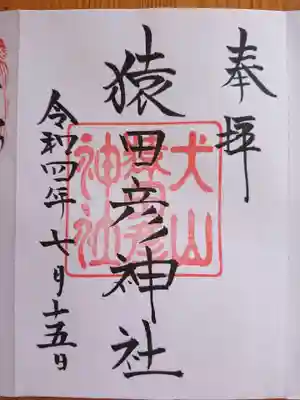 奉拝
猿田彦神社
犬山
猿田彦
神社
令和四年七月十五日